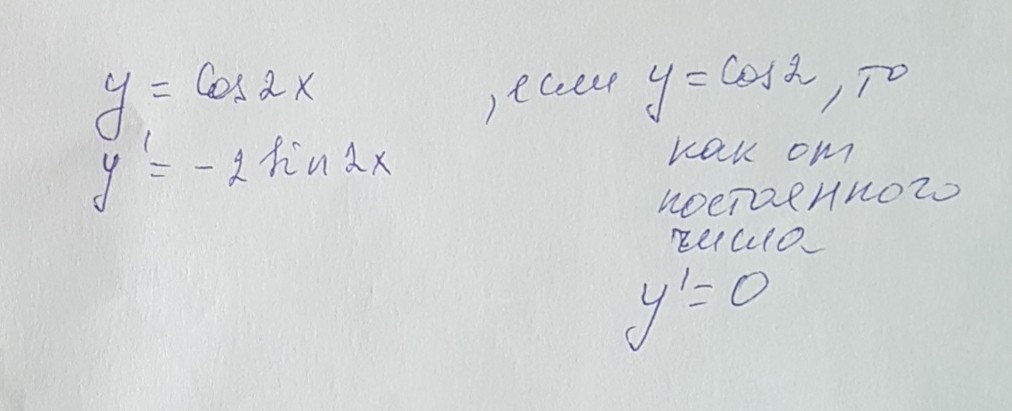 y = Cos 2x
y' = - 2 sin 2x
, если y = Cos 2, то
как от
постоянного
числа
y' = 0